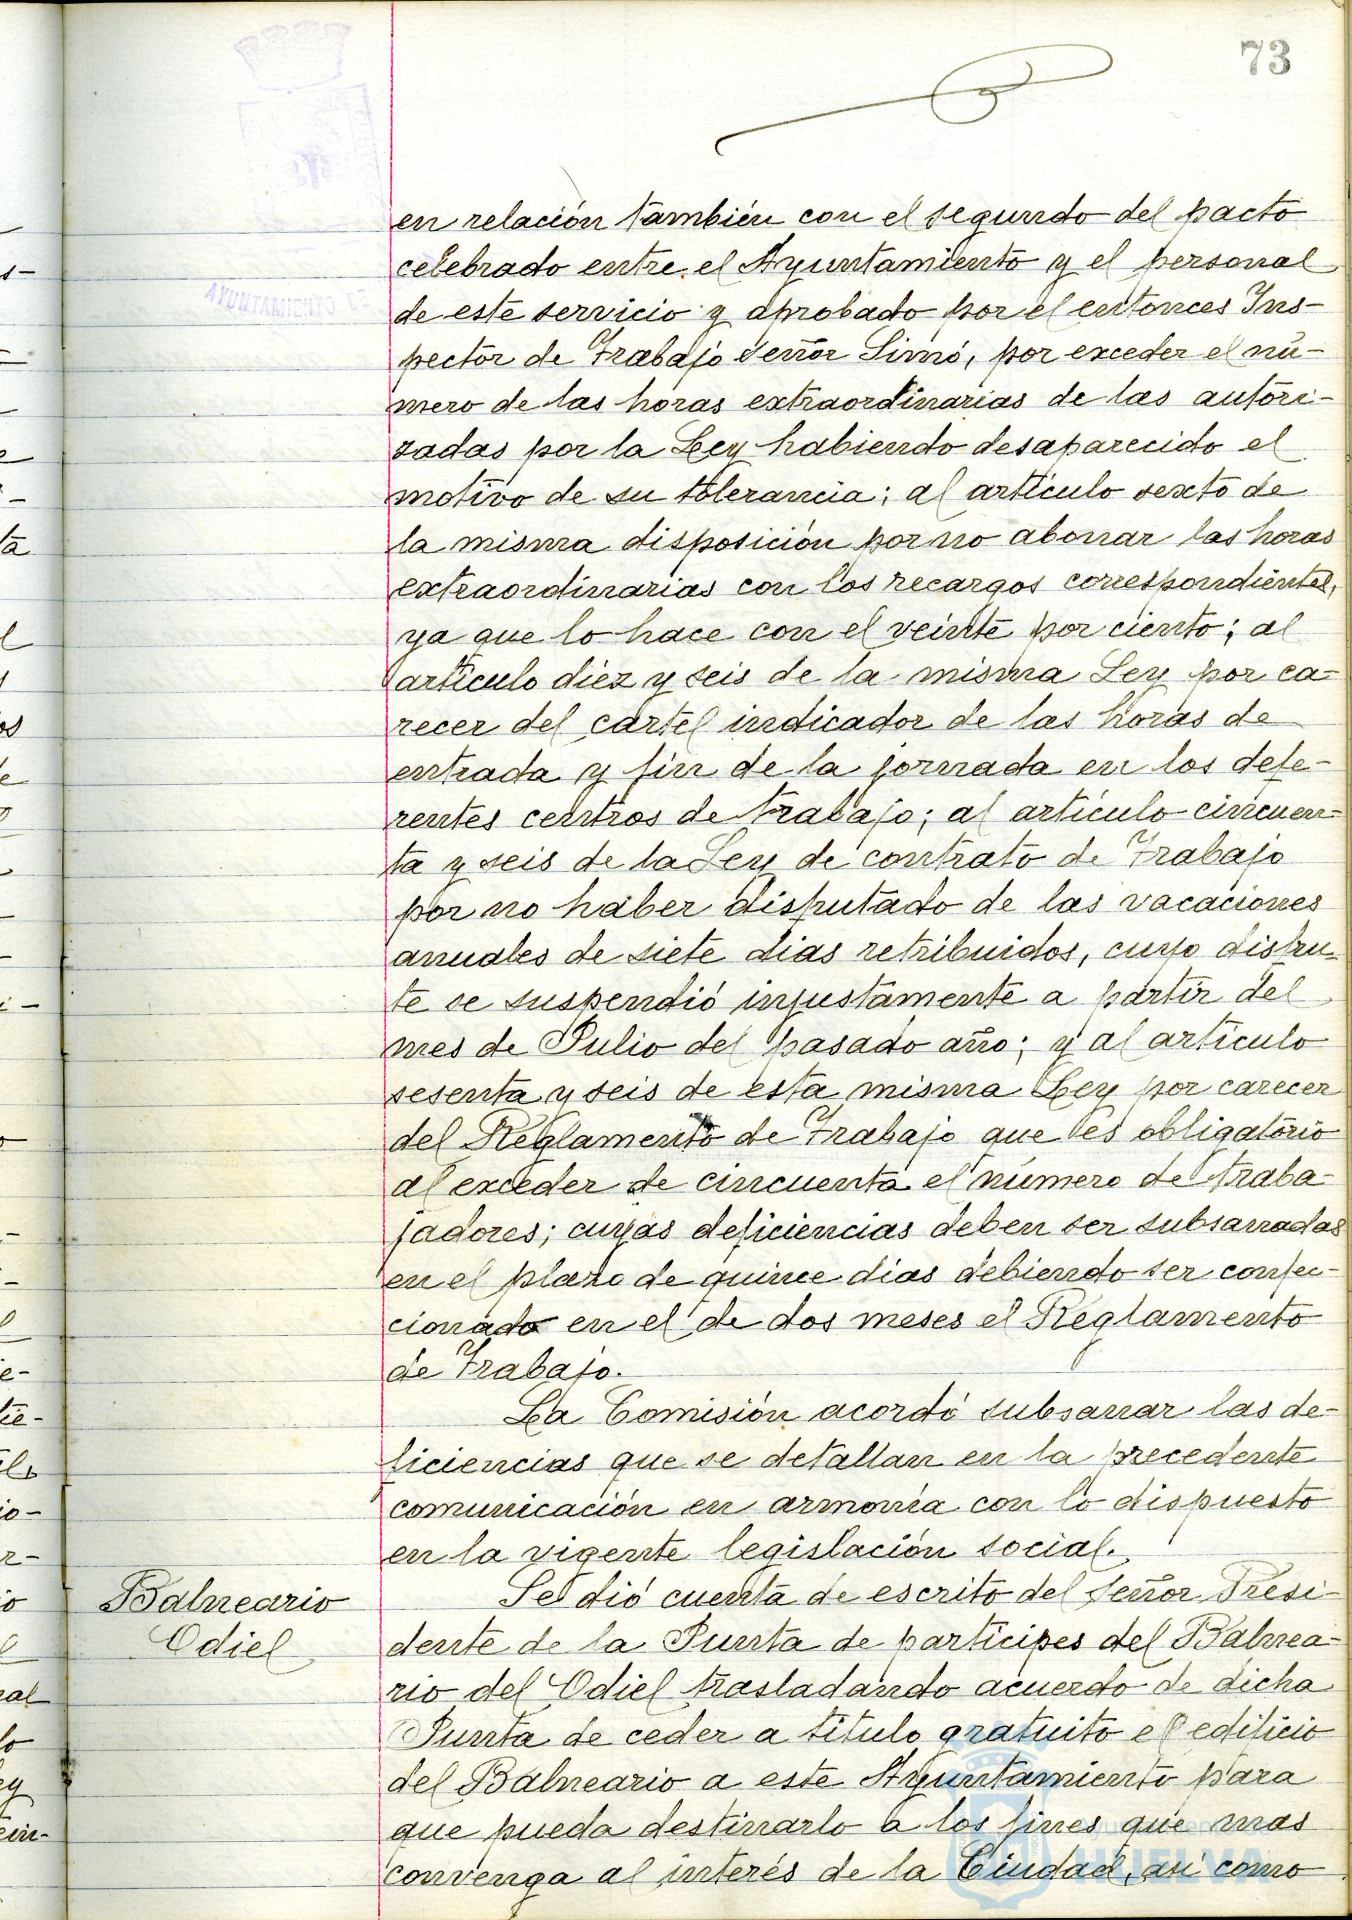 73
AYUNTAMIENTO DE
en relación también con el segundo del pacto
celebrado entre el Ayuntamiento y el personal
de este servicio y aprobado por el entonces Ins-
pector de Trabajo señor Simó, por exceder el nú-
mero de las horas extraordinarias de las autori-
zadas por la Ley habiendo desaparecido el
motivo de su tolerancia; al artículo sexto de
la misma disposición por no abonar las horas
extraordinarias con los recargos correspondientes,
ya que lo hace con el veinte por ciento; al
artículo diez y seis de la misma Ley por ca-
recer del cartel indicador de las horas de
entrada y fin de la jornada en los defe-
rentes centros de trabajo; al artículo cincuen-
ta y seis de la Ley de contrato de Trabajo
por no haber disfrutado de las vacaciones
anuales de siete dias retribuidos, cuyo disfru-
te se suspendió injustamente a partir del
mes de Julio del pasado año; y al artículo
sesenta y seis de esta misma Ley por carecer
del Reglamento de Trabajo que es obligatorio
al exceder de cincuenta el número de traba-
jadores; cuyas deficiencias deben ser subsanadas
en el plazo de quince dias debiendo ser confec-
cionado en el de dos meses el Reglamento
de Trabajo.
La Comisión acordó subsanar las de-
ficiencias que se detallan en la precedente
comunicación en armonía con lo dispuesto
en la vigente legislación social.
Balneario
Odiel
Se dió cuenta de escrito del señor Presi-
dente de la Junta de partícipes del Balnea-
rio del Odiel trasladando acuerdo de dicha
Junta de ceder a título gratuito el edificio
del Balneario a este Ayuntamiento para
que pueda destinarlo a los fines que mas
convenga al interés de la Ciudad, asi como
HUELVA